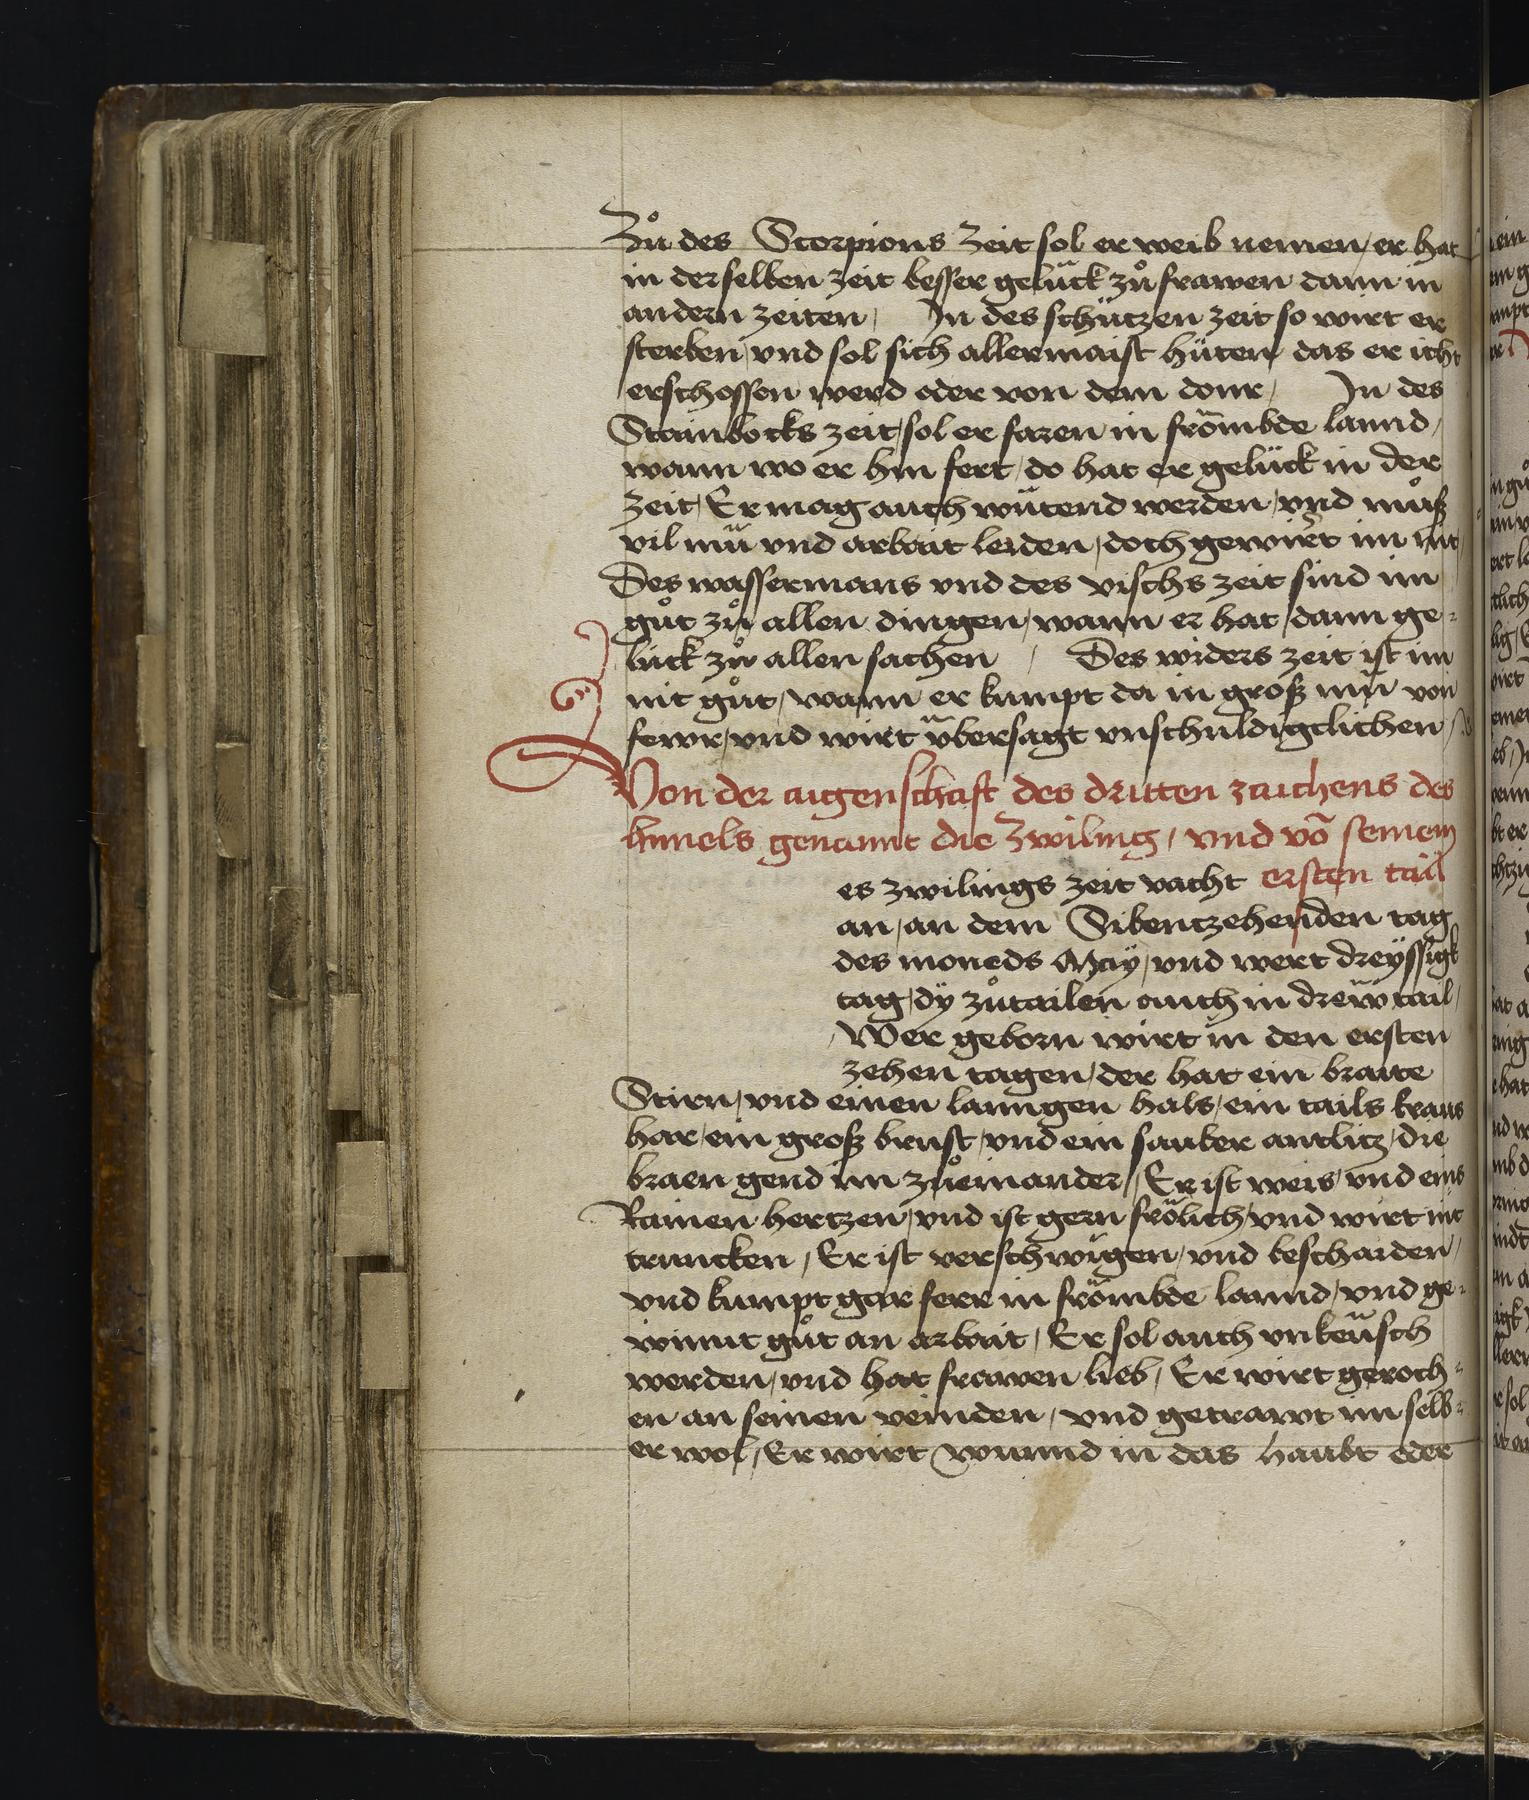 Zuͦ des Scorpions Zeit sol er weib nemen / er hat
in derselben zeit besser gelück zuͦ frawen dann in
andern zeiten / In des schützen zeit so wirt er
sterben / vnd sol sich allermaist hüten / das er icht
erschossen werd oder von dem donr / In des
Stainbocks zeit / sol er faren in frömbde lannd /
wann wo er hin fert / do hat er gelück in der
Zeit / Er mag auch wütend werden / vnd muͦß
vil mü vnd arbait leiden / doch gewirt im nit
Des wassermans vnd des vischs zeit sind im
guͦt zuͦ allen dingen / wann er hat dann ge-
lück zuͦ allen sachen / Des widers zeit ist im
nit guͦt / wann er kumpt da in groß mü von
fewr / vnd wirt übersagt vnschuldigclichen /
Von der aigenschaft des dritten zaichens des
himels genannt die Zwiling / vnd vō seinem
ersten tail
es zwilings zeit vacht
an / an dem Sibentzehenden tag
des moneds May / vnd wert dreyssigk
tag / dÿ zuͦtailen auch in drew tail /
Wer geborn wirt in den ersten
zehen tagen / der hat ein braite
Stirn / vnd einen lanngen hals / ein tails kraus
har / ein groß brust / vnd ein sauber antlitz / die
braen gend im zuͦeinander / Er ist weis / vnd eins
Rainen hertzen / vnd ist gern frölich / vnd wirt nit
truncken / Er ist verschwigen / vnd beschaiden /
vnd kumpt gar ferr in frömbde lannd / vnd ge-
winnt guͦt an arbait / Er sol auch vnkeüsch
werden / vnd hat frawen lieb / Er wirt geroch-
en an seinen veinden / vnd getrawt im selb-
er wol / Er wirt wunnd in das haubt oder